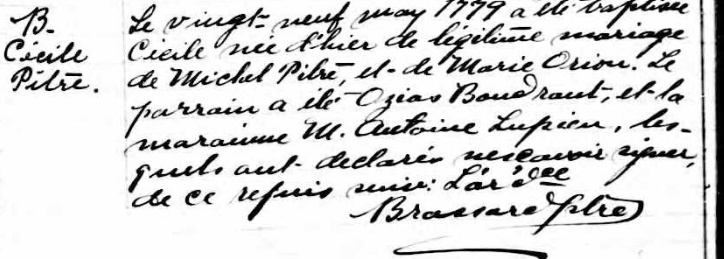 B.
Cécile
Pitre.
Le vingt-neuf may 1779 a été baptisée
Cécile née d'hier de légitime mariage
de Michel Pitre, et de Marie Orion. Le
parrain a été Ozias Boudraut, et la
marainne M. Antoine Lupien, les-
quels ont declarés nescavoir signer,
de ce refuis
Brassard Ptre